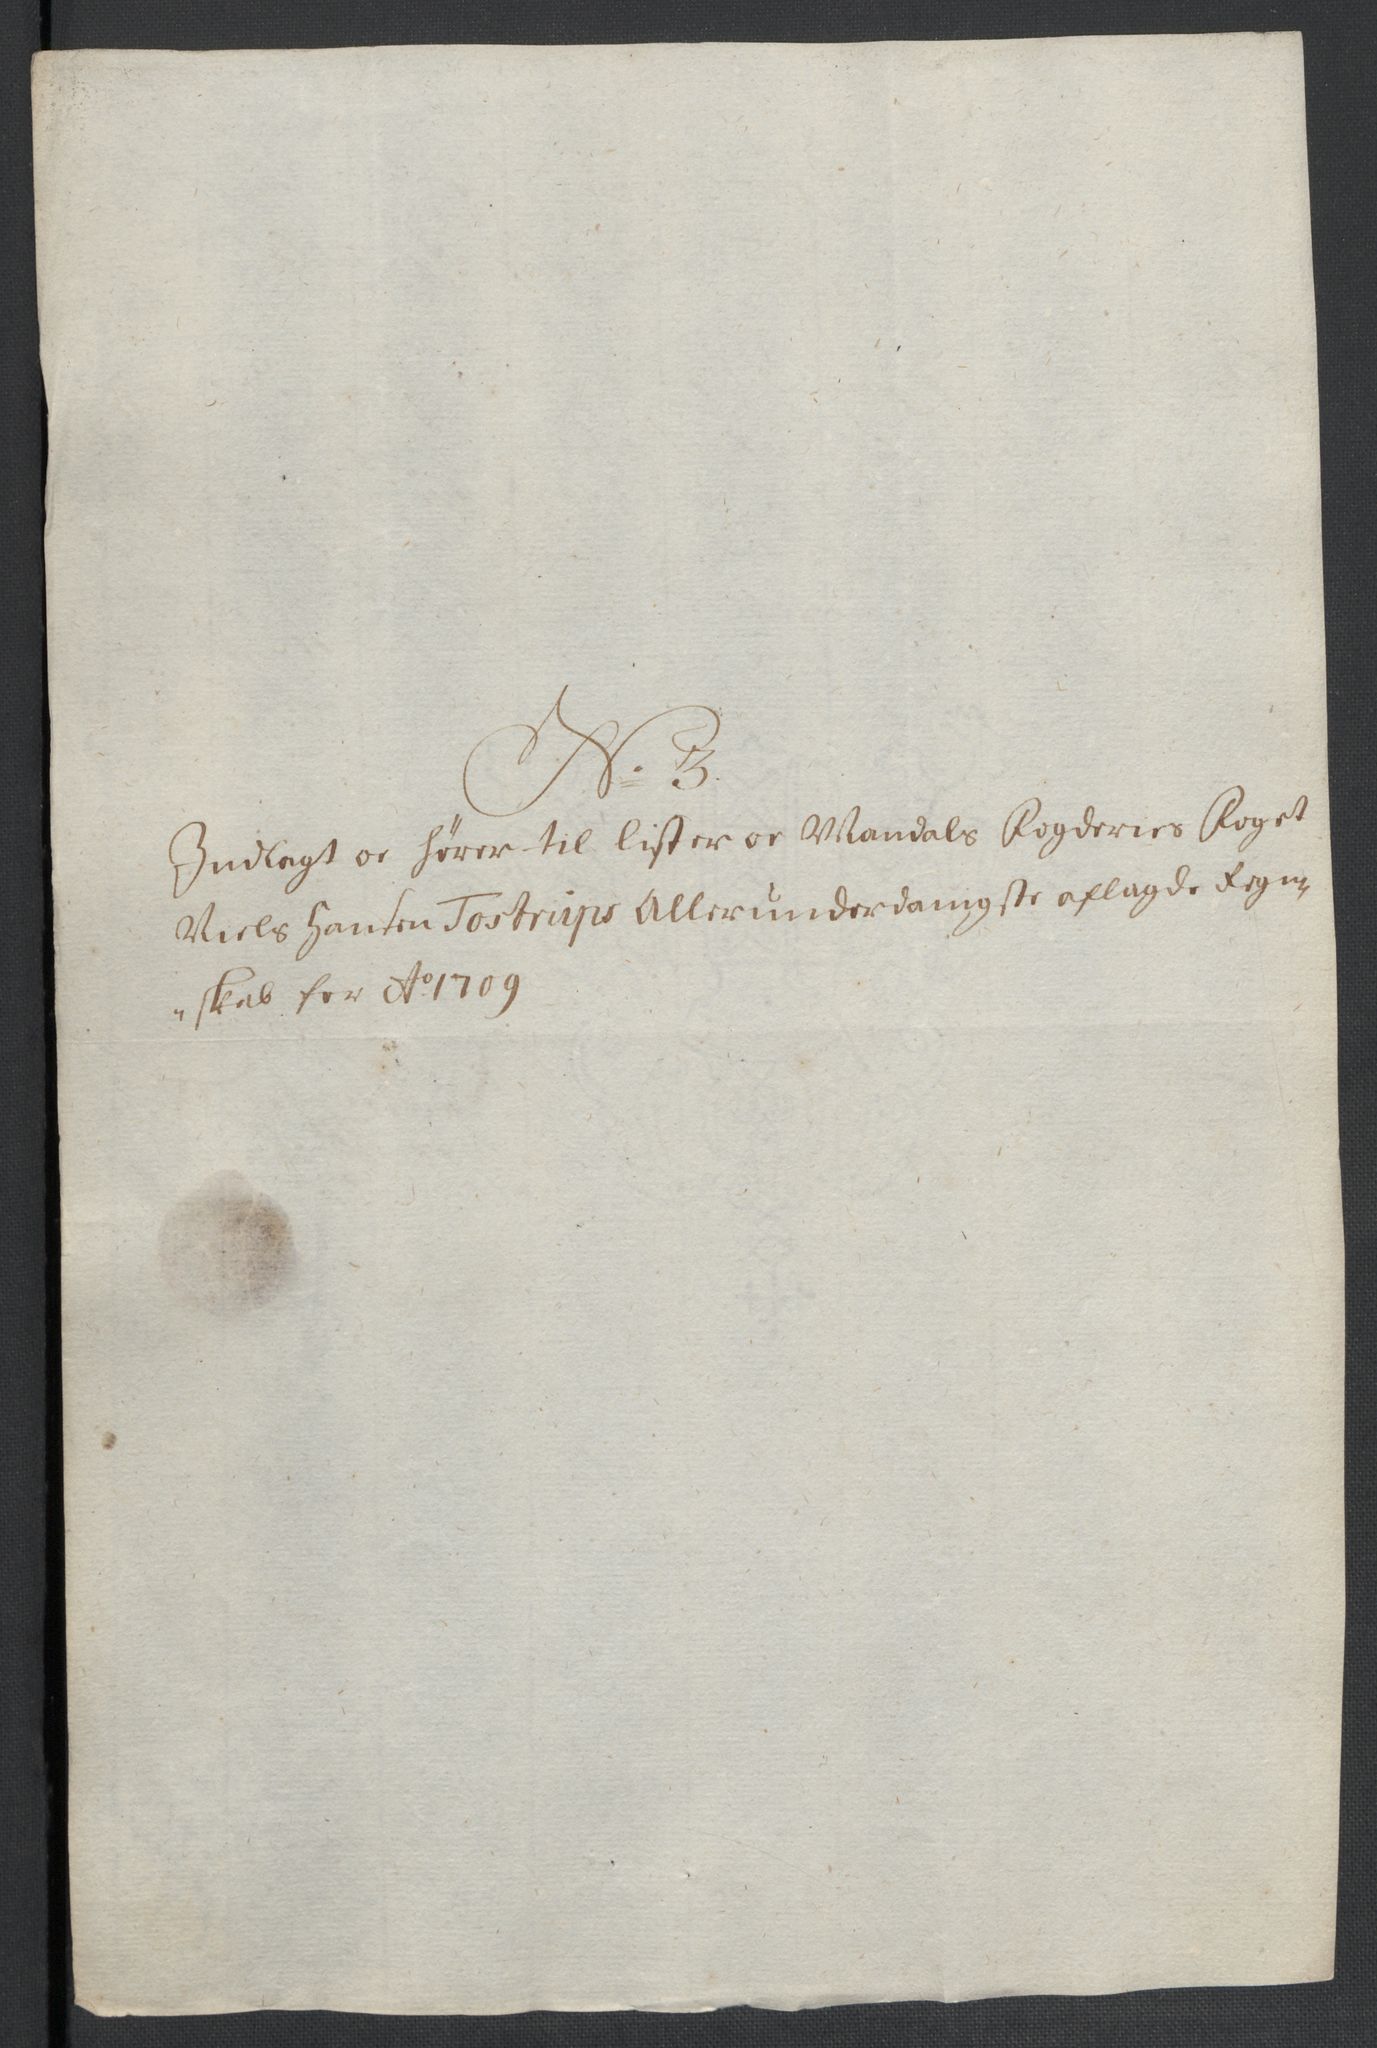 N. 3.
Indlagt oc hører til Lister oc Mandals Fogderies Foget
Niels Hansen Tostrups Allerunderdanigste aflagde Regn,,
,,skab for Ao. 1709